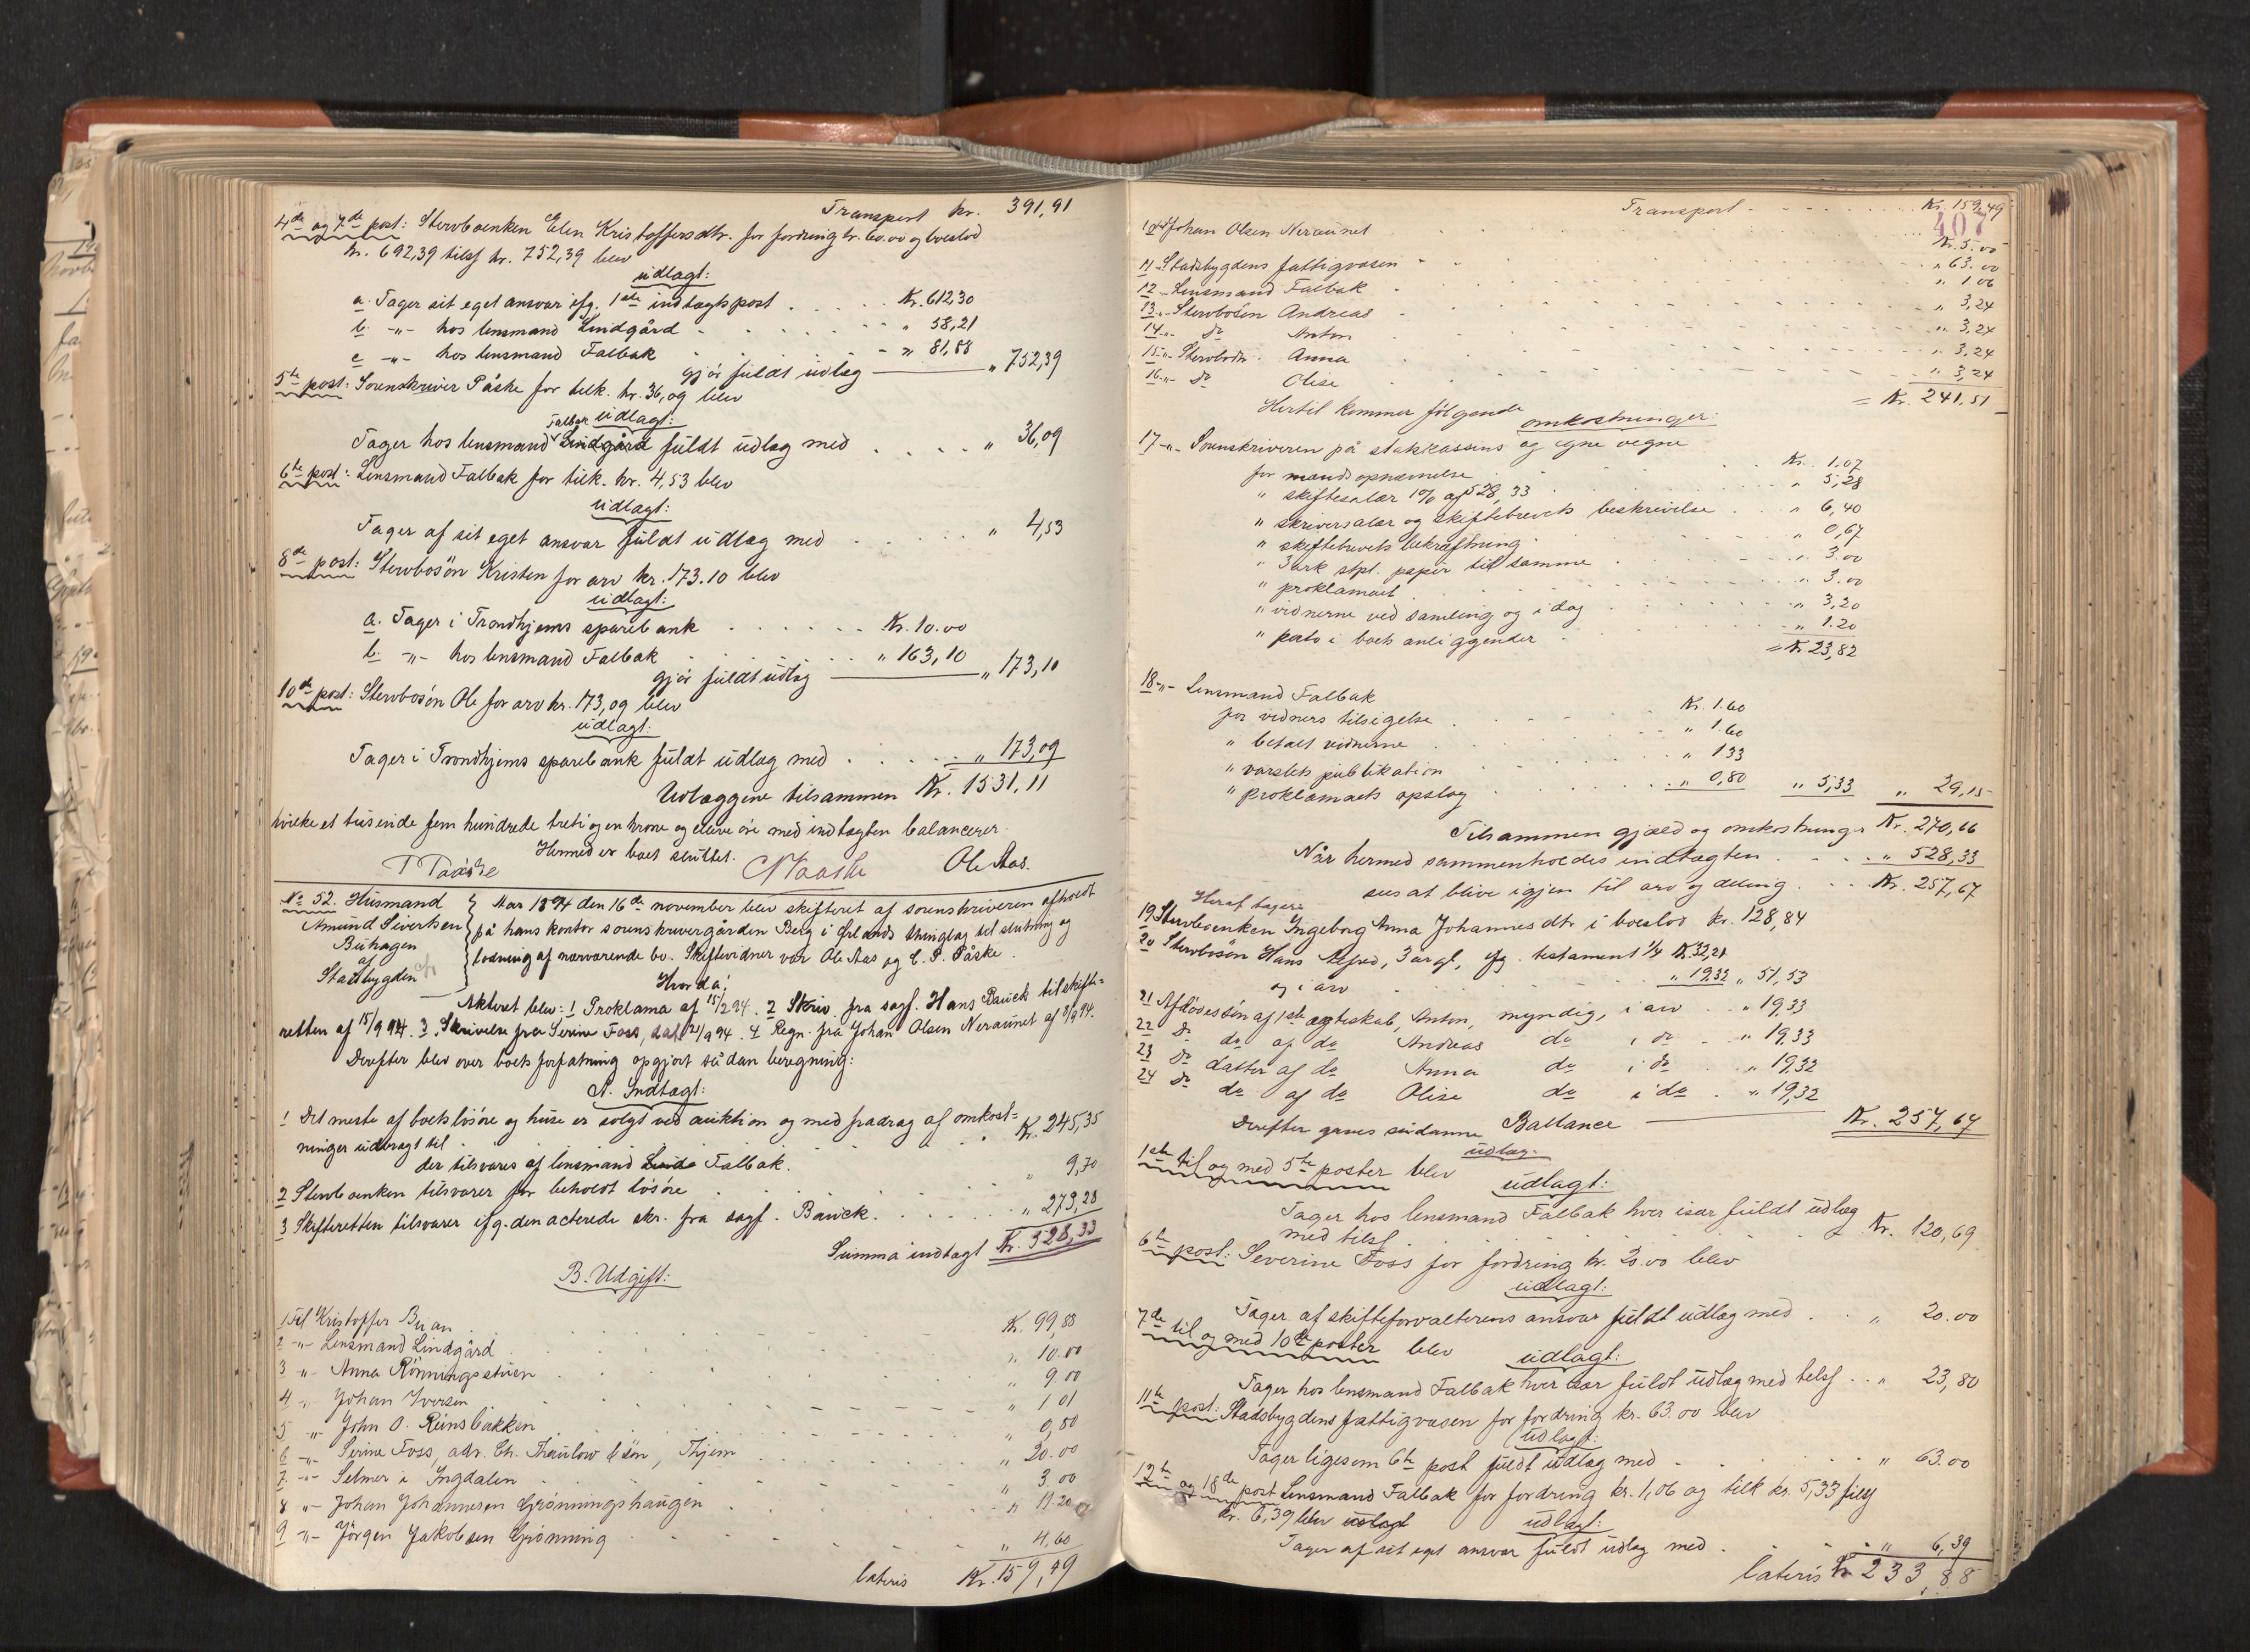 Transport kr. 391,91
4de og 7de post: Stervboenken Elen Kristoffersdtr. for fordring kr. 60.00 og boeslod
kr. 692,39 tils kr. 752,39 blev
udlagt:
a. Tager sit eget ansvar ifg. 1ste indtægtspost . . . Kr. 612,30
b. -„- hos lensmand Lindgård - . . . . „ 58,21
c -„- hos lensmand Falbak . . . - „ 81,88
gjør fuldt udlæg „ 752,39
5te post: Sorenskriver Påske for tilk. kr. 36,09 blev
udlagt:
Falbak
Tager hos lensmand Lindgård fuldt udlæg med . . . . „ 36,09
6te post: Lensmand Falbak for tilk. kr. 4,53 blev
udlagt:
Tager af sit eget ansvar fuldt udlæg med . . . . „ 4,53
8de post: Stervbosön Kristen for arv kr. 173.10 blev
udlagt:
a. Tager i Trondhjems sparebank . . . . . Kr. 10.00
b. -„- hos lensmand Falbak . . . . „ 163,10
gjør fuldt udlæg „ 173,10
10de post: Stervbosön Ole for arv kr. 173,09 blev
udlagt:
Tager i Trondhjems sparebank fuldt udlæg med . . . . „ 173,09
Udlæggene tilsammen Kr. 1531,11
hvilke et tusende fem hundrede treti og en krone og elleve öre med indtægten balancerer.
Hermed er boet sluttet.
Ole Aas.
No 52. Husmand
Amund Sivertsen
Buhagen
af
Stadsbygden
Aar 1894 den 16de november blev skifteret af sorenskriveren afholdt
på hans kontor sorenskrivergården Berg i Ørlands thinglag til slutning og
lodning af nærværende bo. Skiftevidner var Ole Aas og C. P. Påske.
Hvorda:
Akteret blev: 1 Proklama af 15/2 94. 2 Skriv. fra sagf. Hans Bauck til skifte=
retten af 15/9 94. 3. Skrivelse fra Serine Foss, dat. 21/9 94. 4 Regn. fra Johan Olsen Neraunet af 8/9 94.
Derefter blev over boets forfatning opgjort sådan beregning:
A. Indtægt:
1 Det meste af boets lösöre og huse er solgt ved auktion og med fradrag af omkost=
ninger udbragt til . . . . Kr. 245,35
der tilsvares af lensmand Linde Falbak.
2 Stervboenken tilsvarer for beholdt lösöre . . . . „ 9,70
3 Skifteretten tilsvarer ifg. den acterede skr. fra sagf. Bauck. . . . . „ 273,28
Summa indtægt Kr. 528,33
B. Udgift:
1 Til Kristoffer Buan . . . . Kr. 99,88
2 -„- Lensmand Lindgård . . . . „ 10.00
3 -„- Anna Rönningsstuen . . . . „ 9 00
4 -„- Johan Iversen . . . . „ 1 01
5 -„- John O. Reinsbakken . . . . „ 0,80
6 -„- Serine Foss, adr. Ch. Thaulow & sön, Thjem . . . . „ 20.00
7 -„- Selmer i Ingdalen . . . . „ 3.00
8 -„- Johan Johannesen Grønningshaugen . . . . „ 11.20
9 -„- Jörgen Jakobsen Grønning . . . . „ 4,60
lateris Kr. 159,49
Transport - . . . . Kr. 159,49
407
10 Johan Olsen Neraunet . . . . Kr. 5.00
11 -„- Stadsbygdens fattigvæsen - . . . . „ 63.00
12 -„- Lensmand Falbak . . . . „ 1 06
13 -„- Stervbosön Andreas . . . . „ 3,24
14 -„- do Anton . . . . „ 3,24
15 -„- Stervbodtr. Anna . . . . „ 3,24
16 -„- do Olise . . . . „ 3,24
= Kr. 241,51
Hertil kommer følgende
omkostninger:
17 -„- Sorenskriveren på statskassens og egne vegne
for mandsopnævnelse . . . Kr. 1.07
„ skiftesalær 1% af 528,33 . . . „ 5,28
„ skriversalær og skiftebrevets beskrivelse . . . „ 6,40
„ skiftebrevets bekræftning . . . „ 0,67
„ 3 ark stpl. papir til samme . . . „ 3.00
„ proklamaet . . . „ 3.00
„ vidnerne ved samling og i dag . . . „ 3,20
„ porto i boets anliggender . . . „ 1.20
= Kr 23,82
18 -„- Lensmand Falbak
for vidners tilsigelse . . . Kr. 1.60
„ betalt vidnerne . . . „ 1.60
„ varslets publikation . . . „ 133
„ proklamaets opslag . . . „ 0,80 „ 5,33 „ 29,15
Tilsammen gjæld og omkostninger Kr. 270,66
Når hermed sammenholdes indtægten . . . „ 528,33
sees at blive igjen til arv og deling . . . Kr. 257,67
Heraf tager:
19 Stervboenken Ingeborg Anna Johannesdtr i boeslod kr. 128,84
20 Stervbosön Hans Alfred, 3 år gl, ifg. testament 1/4 Kr. 32,21
og i arv . . . „ 19.32 „ 51,53
21 Afdødes sön af 1ste ægteskab, Anton, myndig, i arv . . „ 19,33
22 do do af do Andreas do i do . „ 19,33
23 do datter af do Anna do i do . „ 19,32
24 do do af do Olise do i do . „ 19,32
Ballance Kr. 257,67
Derefter gaves sådanne
udlæg.
1ste til og med 5te poster blev udlagt:
Tager hos lensmand Falbak hver især fuldt udlæg
med tils. . . . Kr. 120,69
6te post: Severine Foss for fordring kr. 20.00 blev
udlagt:
Tager af skifteforvalterens ansvar fuldt udlæg med . . „ 20.00
7de til og med 10de poster blev udlagt:
Tager hos lensmand Falbak hver især fuldt udlæg med tils . . „ 23,80
11te post: Stadsbygdens fattigvæsen for fordring kr. 63.00 blev
udlagt:
Tager ligesom 6te post fuldt udlæg med - . . . „ 63.00
12te og 18de post Lensmand Falbak for fordring kr. 1,06 og tilk kr. 5,33 tils
kr. 6,39 blev udlagt udlagt:
Tager af sit eget ansvar fuldt udlæg med . . . „ 6,39
lateris Kr 233,88